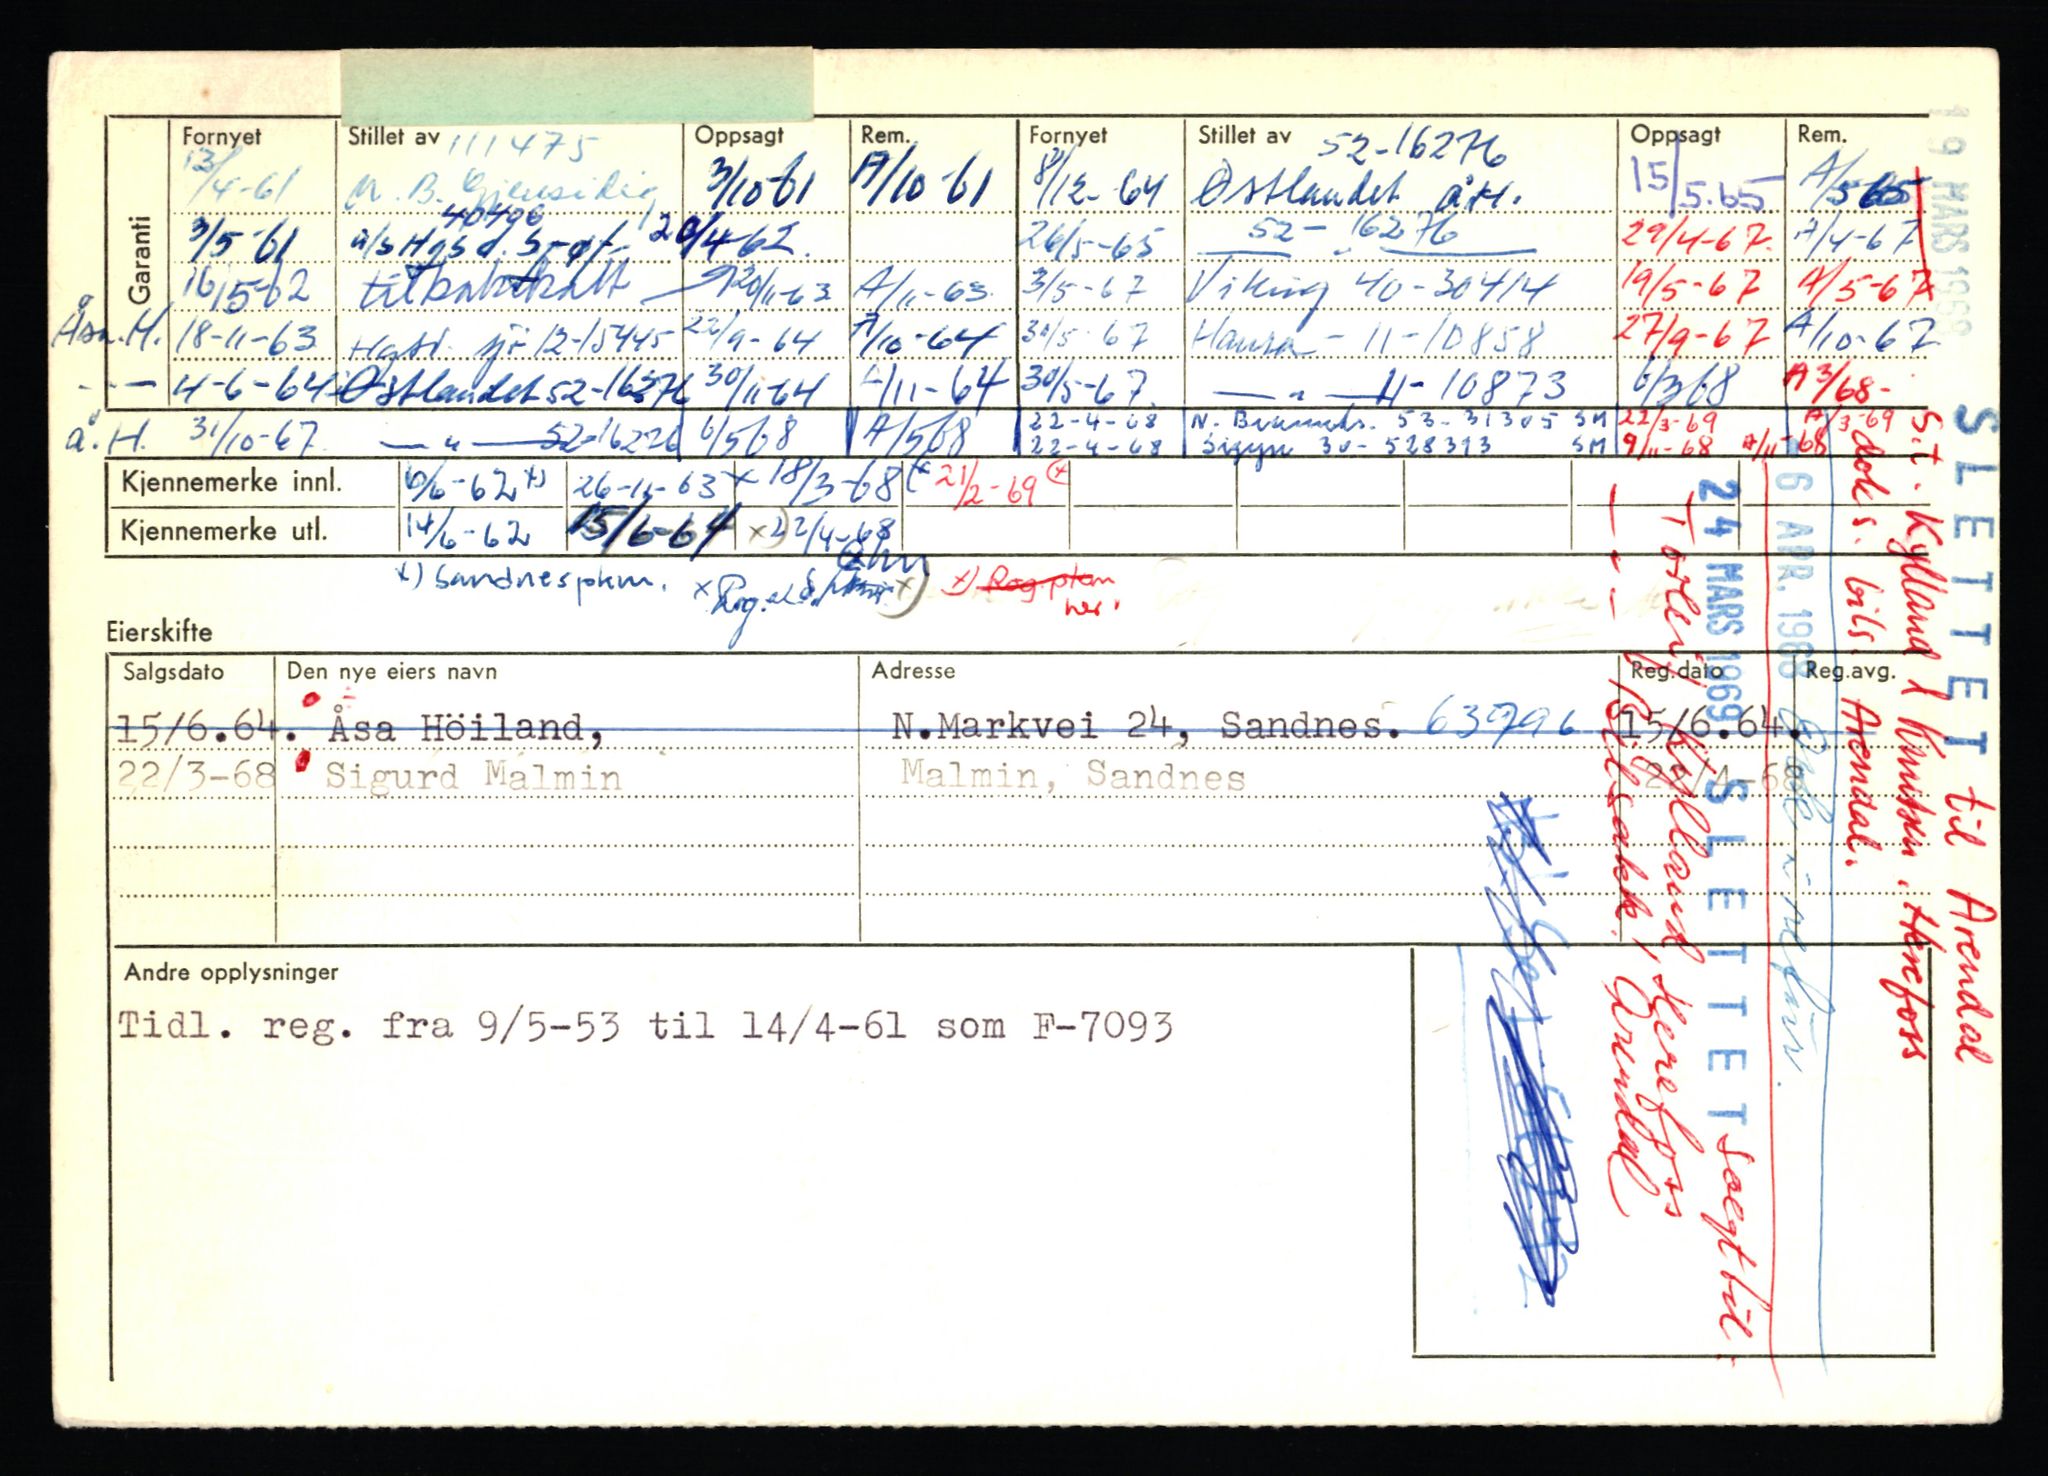 Garanti
Fornyet Stillet av 111475 Oppsagt Rem. Fornyet Stillet av 52-16276 Oppsagt Rem.
13/4-61 N. B. Gjensidig 3/10-61 A/10-61 8/12-64 Østlandet å.H. 15/5.65 A/565
40496
3/5-61 a/s Hgsd. 20/4-62 26/5-65 52-16276 29/4-67 A/4-67
16/5-62 tilbakekalt 20/11-63 A/11-63 3/5-67 Viking 40-30414 19/5-67 A/5-67
Åsn.H. 18-11-63 12-15445 22/9-64 A/10-64 30/5-67 Hansa - 11-10858 27/9-67 A/10-67
-"- 4-6-64 Østlandet 52-16276 30/11-64 A/11-64 30/5-67 -"- 11-10873 6/3 68 A 3/68-
å.H. 31/10-67 -"- 52-16276 6/5 68 A/5 68 22-4-68 N. 53-31305 SM 22/3-69 A/3-69
22-4-68 Sigyn 30-528313 SM 9/11-68 A/11-68
Kjennemerke innl. 6/6-62 x) 26-11-63 x 18/3-68 21/2-69 x)
Kjennemerke utl. 14/6-62 15/6-64 x) 22/4-68
x) Sandnes pkm. x Reg. x) Reg.pkm
her.
Eierskifte
Salgsdato Den nye eiers navn Adresse Reg.dato Reg.avg.
15/6.64. Åsa Höiland, N.Markvei 24, Sandnes. 63796 15/6.64.
22/3-68 Sigurd Malmin Malmin, Sandnes 22/4-68
Andre opplysninger
Tidl. reg. fra 9/5-53 til 14/4-61 som F-7093
19 MARS 1969
SLETTET til Arendal
S.t. Kylland, Knutsen. Herefoss
doks. bils. Arendal.
6 APR. 1968
24 MARS 1969 SLETTET Solgt til:
Torleif Kylland, Herefoss
- " - Bilsakk. Arendal